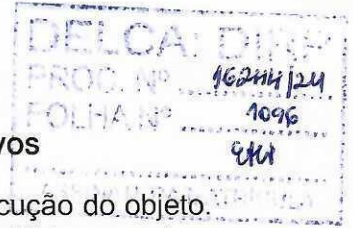 DELCA: DIRP
PROC. Nº 16244/24
FOLHA Nº 1096
vos
cução do objeto.